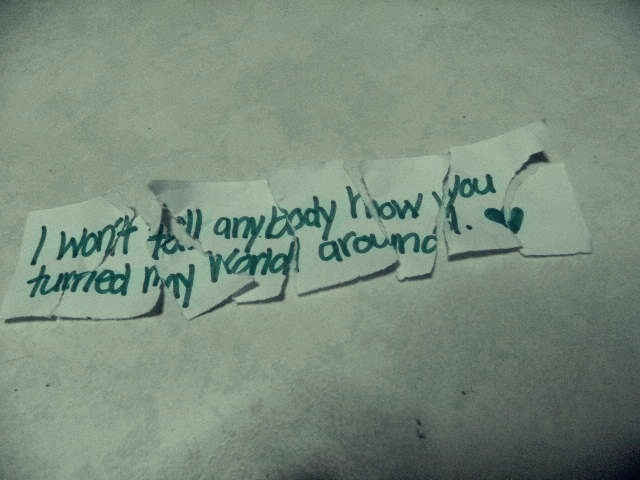 I won't tell anybody how you
turned my world around. ♥